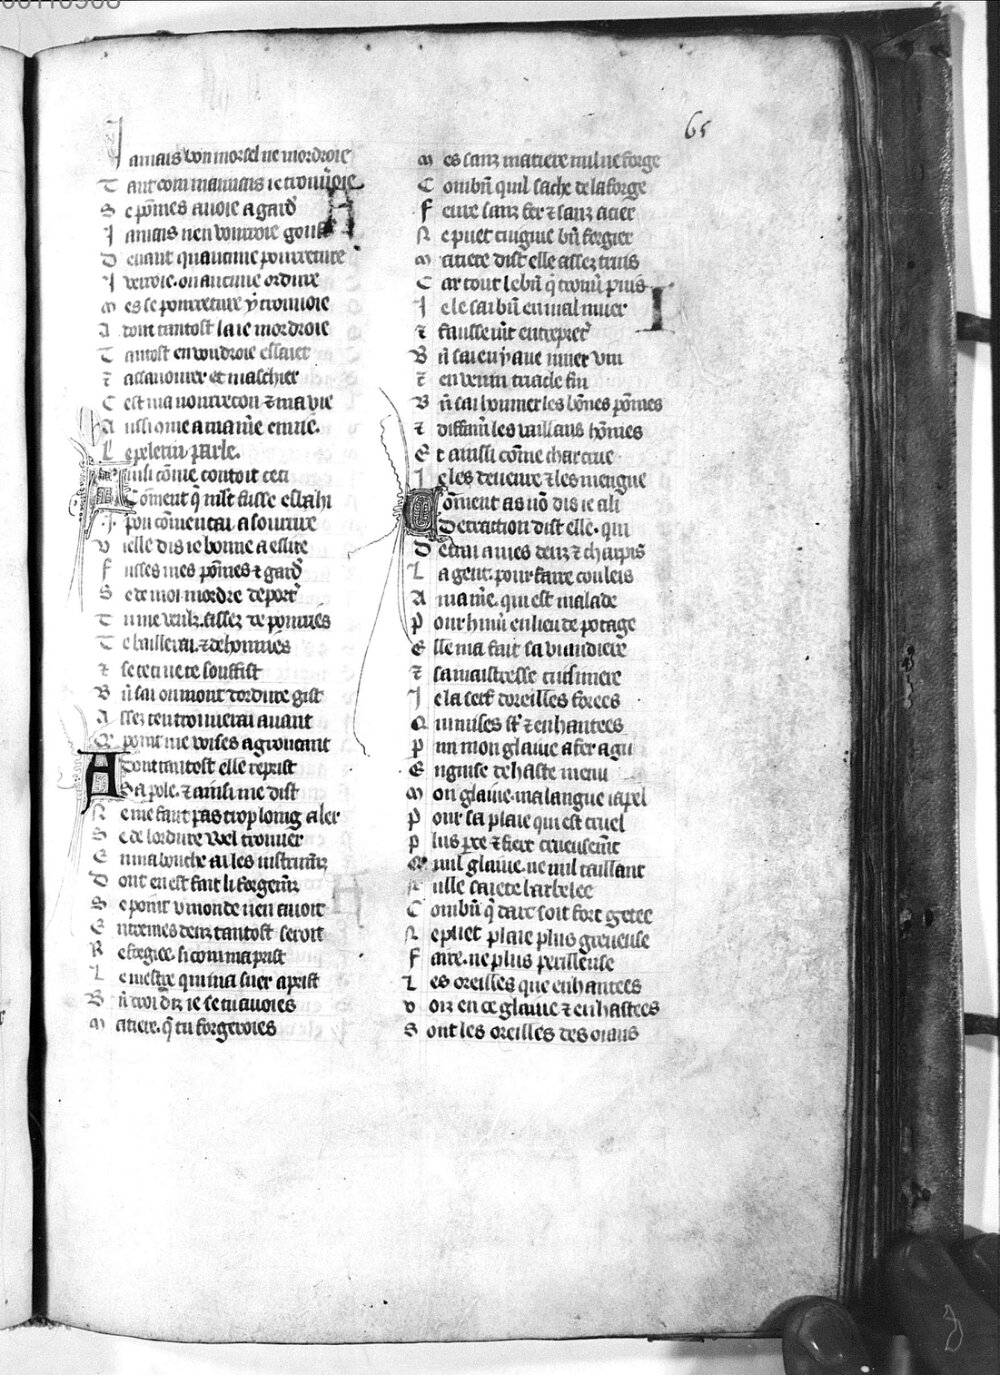 65
J amais bon morsel ne mordroie
T ant com mauuais ie trouueroie
S e pōmes auoie a gard
J amais nen vourroie gouster
D euant quaucune pourreture
J verroie. ou aucune ordure
M es se pourreture y trouuoie
A dont tantost la ie mordroie
T antost en voudroie essaier
⁊ assauourer et maschier
C est ma nourrecon ⁊ ma vie
A ussi ome a ma mere enuie.
L e pelerin parle.
A insi cōme contoit ceci
Cōment q mlt fusse esbahi
J pou cōmencai a sourrire
V ielle dis ie bonne a eslire
F usses mes pōmes ⁊ gard
S e de moi mordre deport
T u me veulz. assez de pommes
T e bailleray. ⁊ de bonnes
⁊ se ceci ne te souffist
B n sai ou mont dordure gist
A ssez ten trouuerai auant
Q point me voises agreuant
A dont tantost elle reprist
Sa pole. ⁊ ainsi me dist
N e me faut pas trop loing aler
S e de lordure vuel trouuer
E n ma bouche ai les instrumz
D ont en est fait li forgemz
S e point v monde nen auoit
E ntre mes denz tantost seroit
R eforgiee. si com maprist
L e mestre qui ma suer aprist
B n croi dit ie se tu auoies
M atiere. q̄ tu forgeroies
M es sanz matiere nul ne forge
C ombn̄ quil sache de la forge
F eure sanz fer ⁊ sanz acier
N e puet cuigniee bn̄ forgier
M atiere dist elle assez truis
C ar tout le bn̄ q̄ trouu puis
J e le sai bn̄ en mal muer
⁊ faussemt entrepreter
B n̄ sai en yaue muer vin
⁊ en venin triacle fin
B n̄ sai hounier les bōnes pōmes
⁊ diffamer les vaillans hōmes
E t ainsi cōme charcuie
J e les deueure ⁊ les mengue
Cōment as nō dis ie a li
Detraction dist elle. qui
D etrai a mes denz ⁊ charpis
L a gent. pour faire couleis
A ma mere. qui est malade
P our humer en lieu de potage
E lle ma fait sa viandiere
⁊ sa maistresse cuisiniere
J e la serf doreilles forees
Q ui mises st̄ ⁊ enhantees
P mi mon glaiue a fer agu
E n guise de haste menu
M on glaiue. ma langue iapel
P our sa plaie qui est cruel
P lus pce ⁊ fiert crueusemt
Q nul glaiue. ne nul taillant
N ulle saiete barbelee
C ombn̄ q̄ dare soit fort getee
N e puet plaie plus greueuse
F aire. ne plus perilleuse
L es oreilles que enhantees
V oiz en ce glaiue ⁊ enhastees
S ont les oreilles des oians